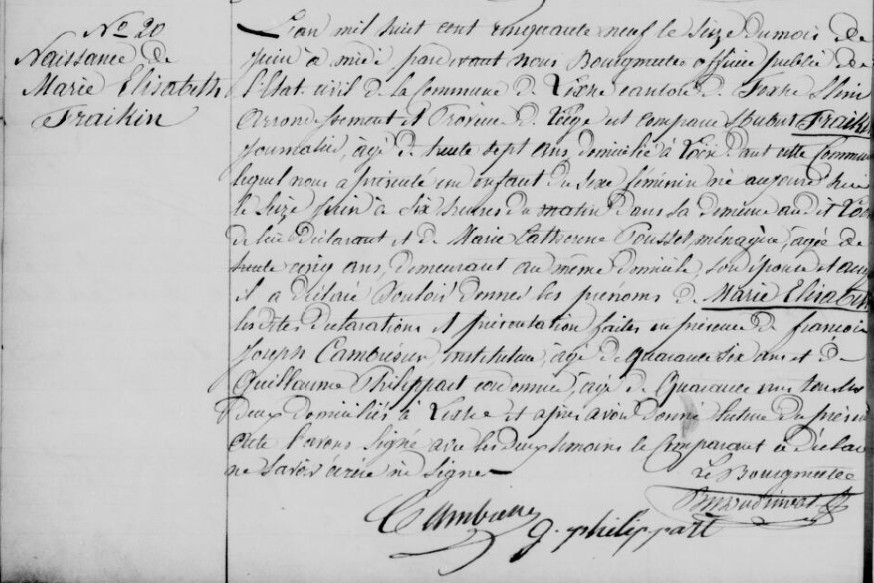 No 20
Naissance de
Marie Elisabeth
Fraikin
L'an mil huit cent cinquante neuf le Seize du mois de
Juin à midi pardevant nous Bourgmestre officier public de
l'Etat civil de la Commune de Lixhe canton de
Arrondissement et Province de Liége est comparu Hubert Fraikin
Journalier, agé de trente sept ans, domicilié à dans cette Commune
lequel nous a présenté un enfant du sexe féminin né aujourd'hui
le Seize Juin à Six heures du matin dans sa demeure audit
de lui déclarant et de Marie Catherine Pousset ménagère, agée de
trente cinq ans, demeurant au même domicile, son épouse et auquel
il a déclaré vouloir donner les prénoms de Marie Elisabeth
les dites déclaration et présentation faites en présence de françois
Joseph Cambresier instituteur, agé de quarante six ans et de
Guillaume Philippart cordonnier, agé de Quarante ans tous les
deux domiciliés à Lixhe et après avoir donné lecture du présent
acte l'avons signé avec les deux témoins le Comparant a déclaré
ne savoir écrire ni signer
Le Bourgmestre
g. philippart